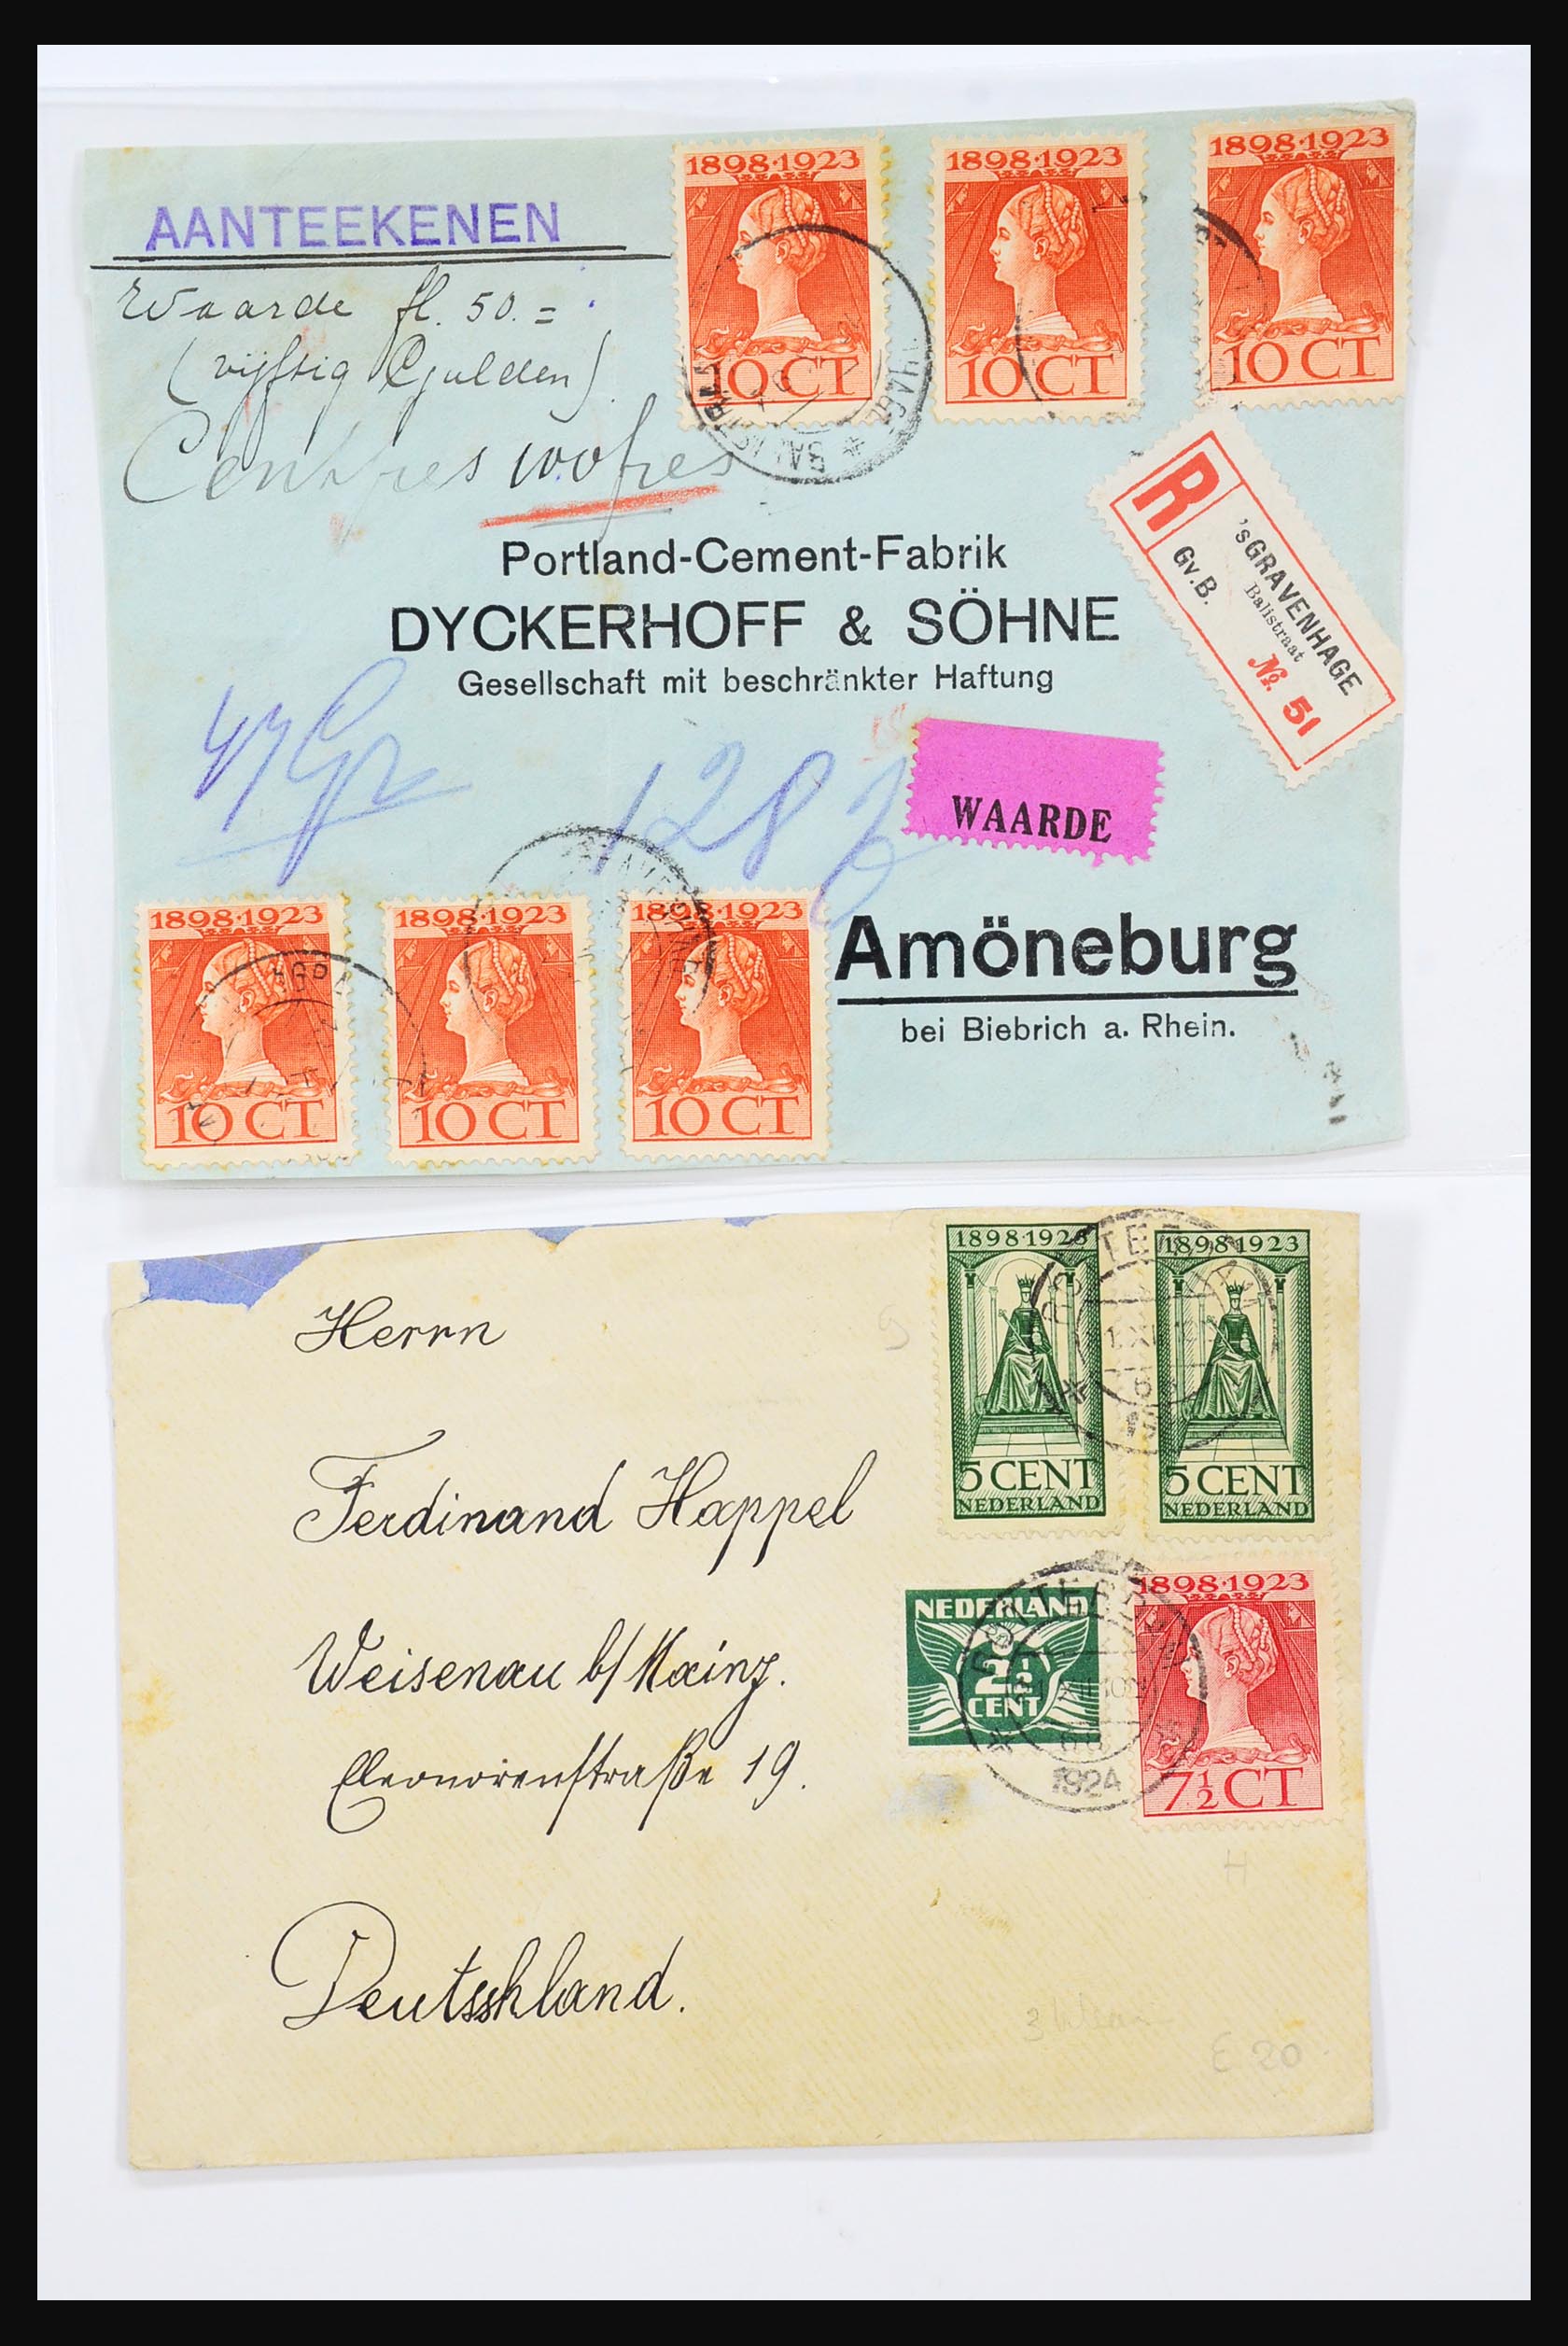 1898·1923
1898·1923
1898·1923
AANTEEKENEN
Waarde fl. 50.=
(vijftig Gulden).
10 CT
10 CT
10 CT
Cent frcs 100 frcs
R
'sGRAVENHAGE
Balistraat
Gv.B.
№. 51
Portland-Cement-Fabrik
DYCKERHOFF & SÖHNE
Gesellschaft mit beschränkter Haftung
47 Gr
128
WAARDE
1898·1923
1898·1923
1898·1923
Amöneburg
bei Biebrich a. Rhein.
10 CT
10 CT
10 CT
1898·1923
1898·1923
Herrn
5 CENT
NEDERLAND
5 CENT
NEDERLAND
Ferdinand Happel
NEDERLAND
2½
CENT
1898·1923
7½ CT
1924
Weisenau b/ Mainz.
Eleonorenstraße 19.
Deutsshland.
E 20